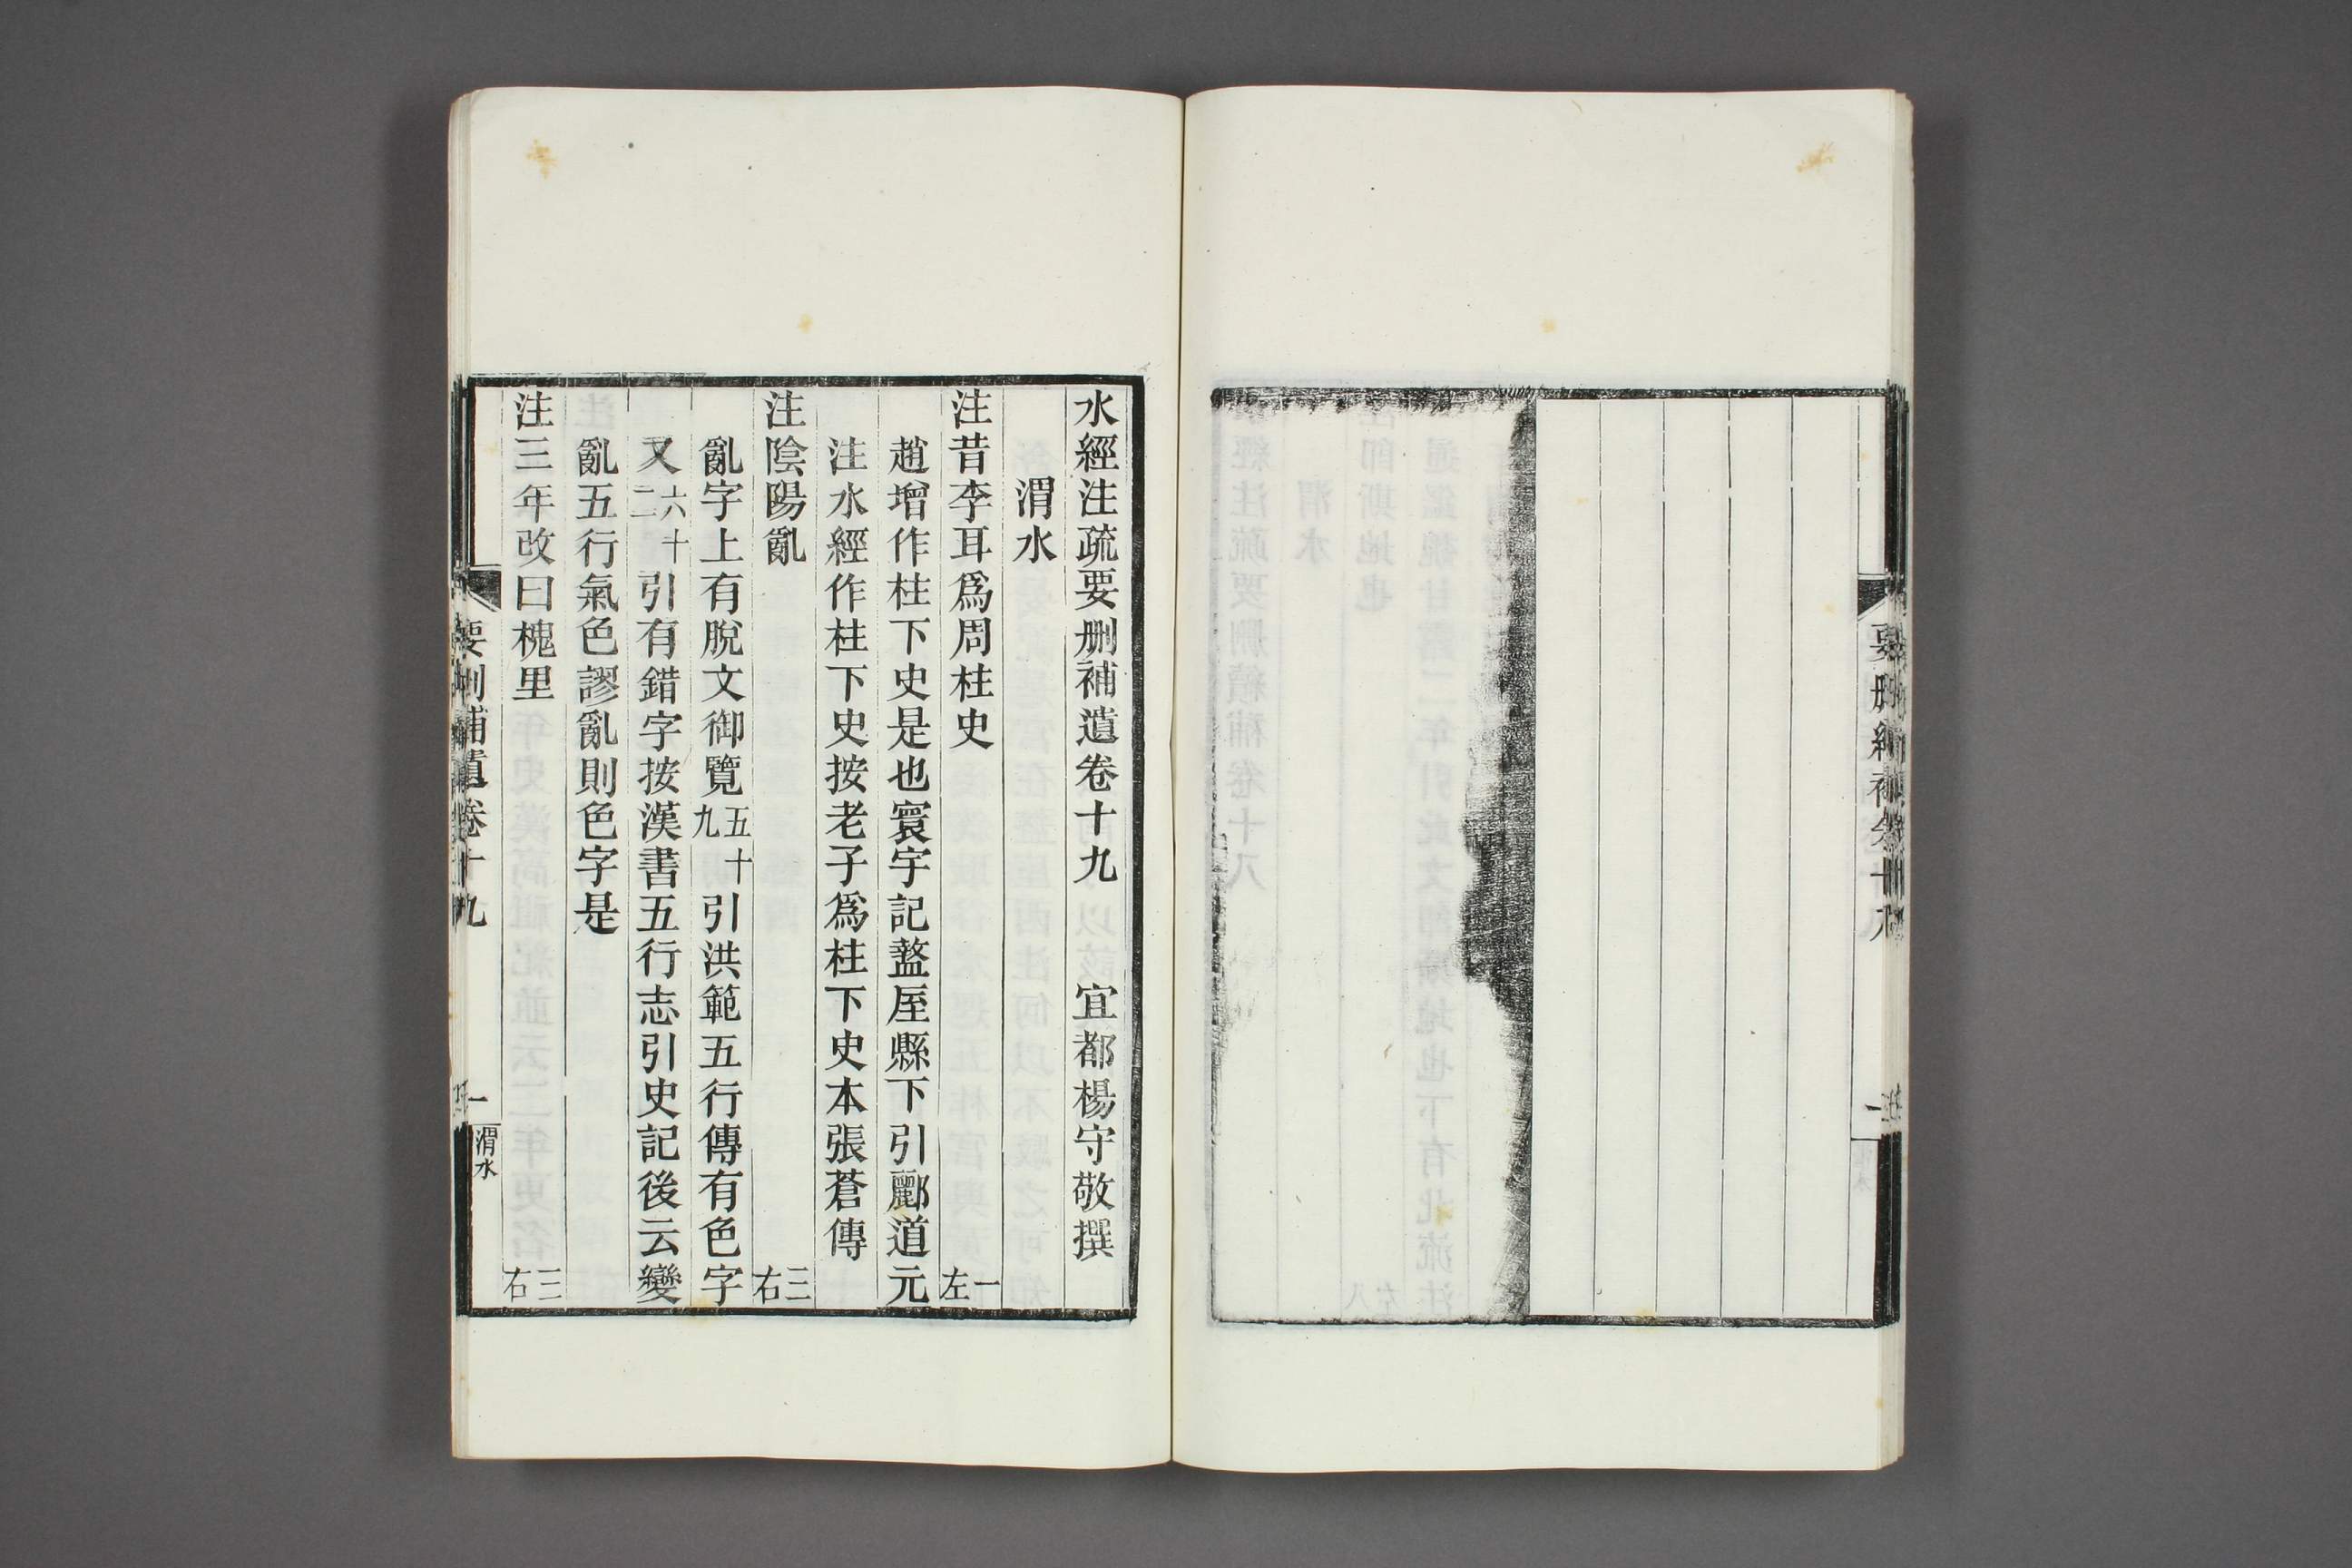 要删續補卷十八
一
水經注疏要删補遺卷十九 宜都楊守敬撰
渭水
注昔李耳爲周柱史 一左
趙增作柱下史是也寰宇記盩厔縣下引酈道元
注水經作柱下史按老子爲柱下史本張蒼傳
注陰陽亂 三右
亂字上有脫文御覽五十九引洪範五行傳有色字
又六十二引有錯字按漢書五行志引史記後云變
亂五行氣色謬亂則色字是
注三年改曰槐里 三右
要删補遺卷十九
一
渭水